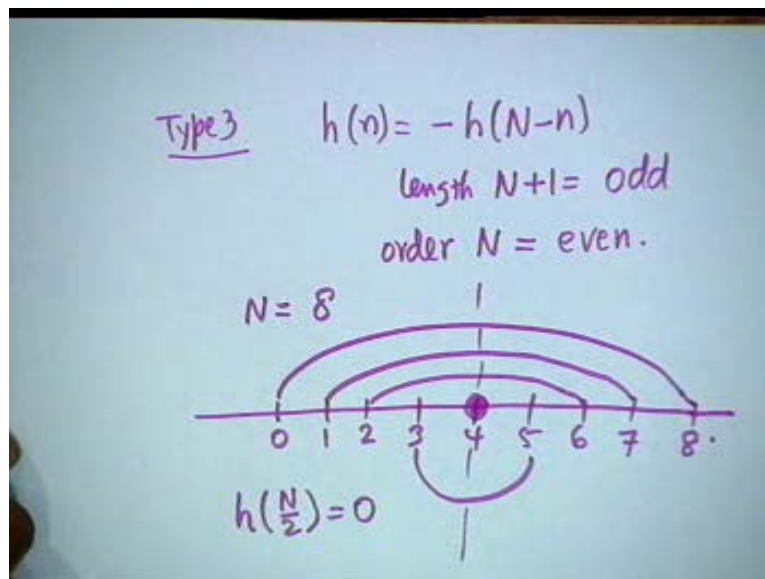 Type 3 h(n) = - h(N-n)
length N+1 = odd
order N = even.
N = 8
0 1 2 3 4 5 6 7 8.
h(N/2) = 0